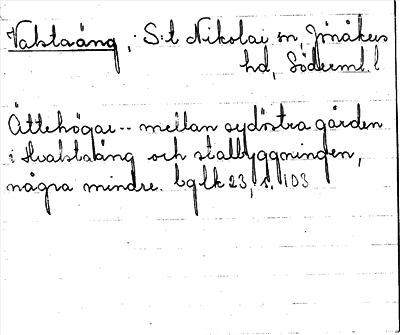 Valstaäng, S:t Nikolai sn, Jönåkers
hd, Söderml l
Ättehögar -- mellan sydöstra gården
i Hvalstaäng och stallbyggningen,
några mindre. bglk 23, s. 103